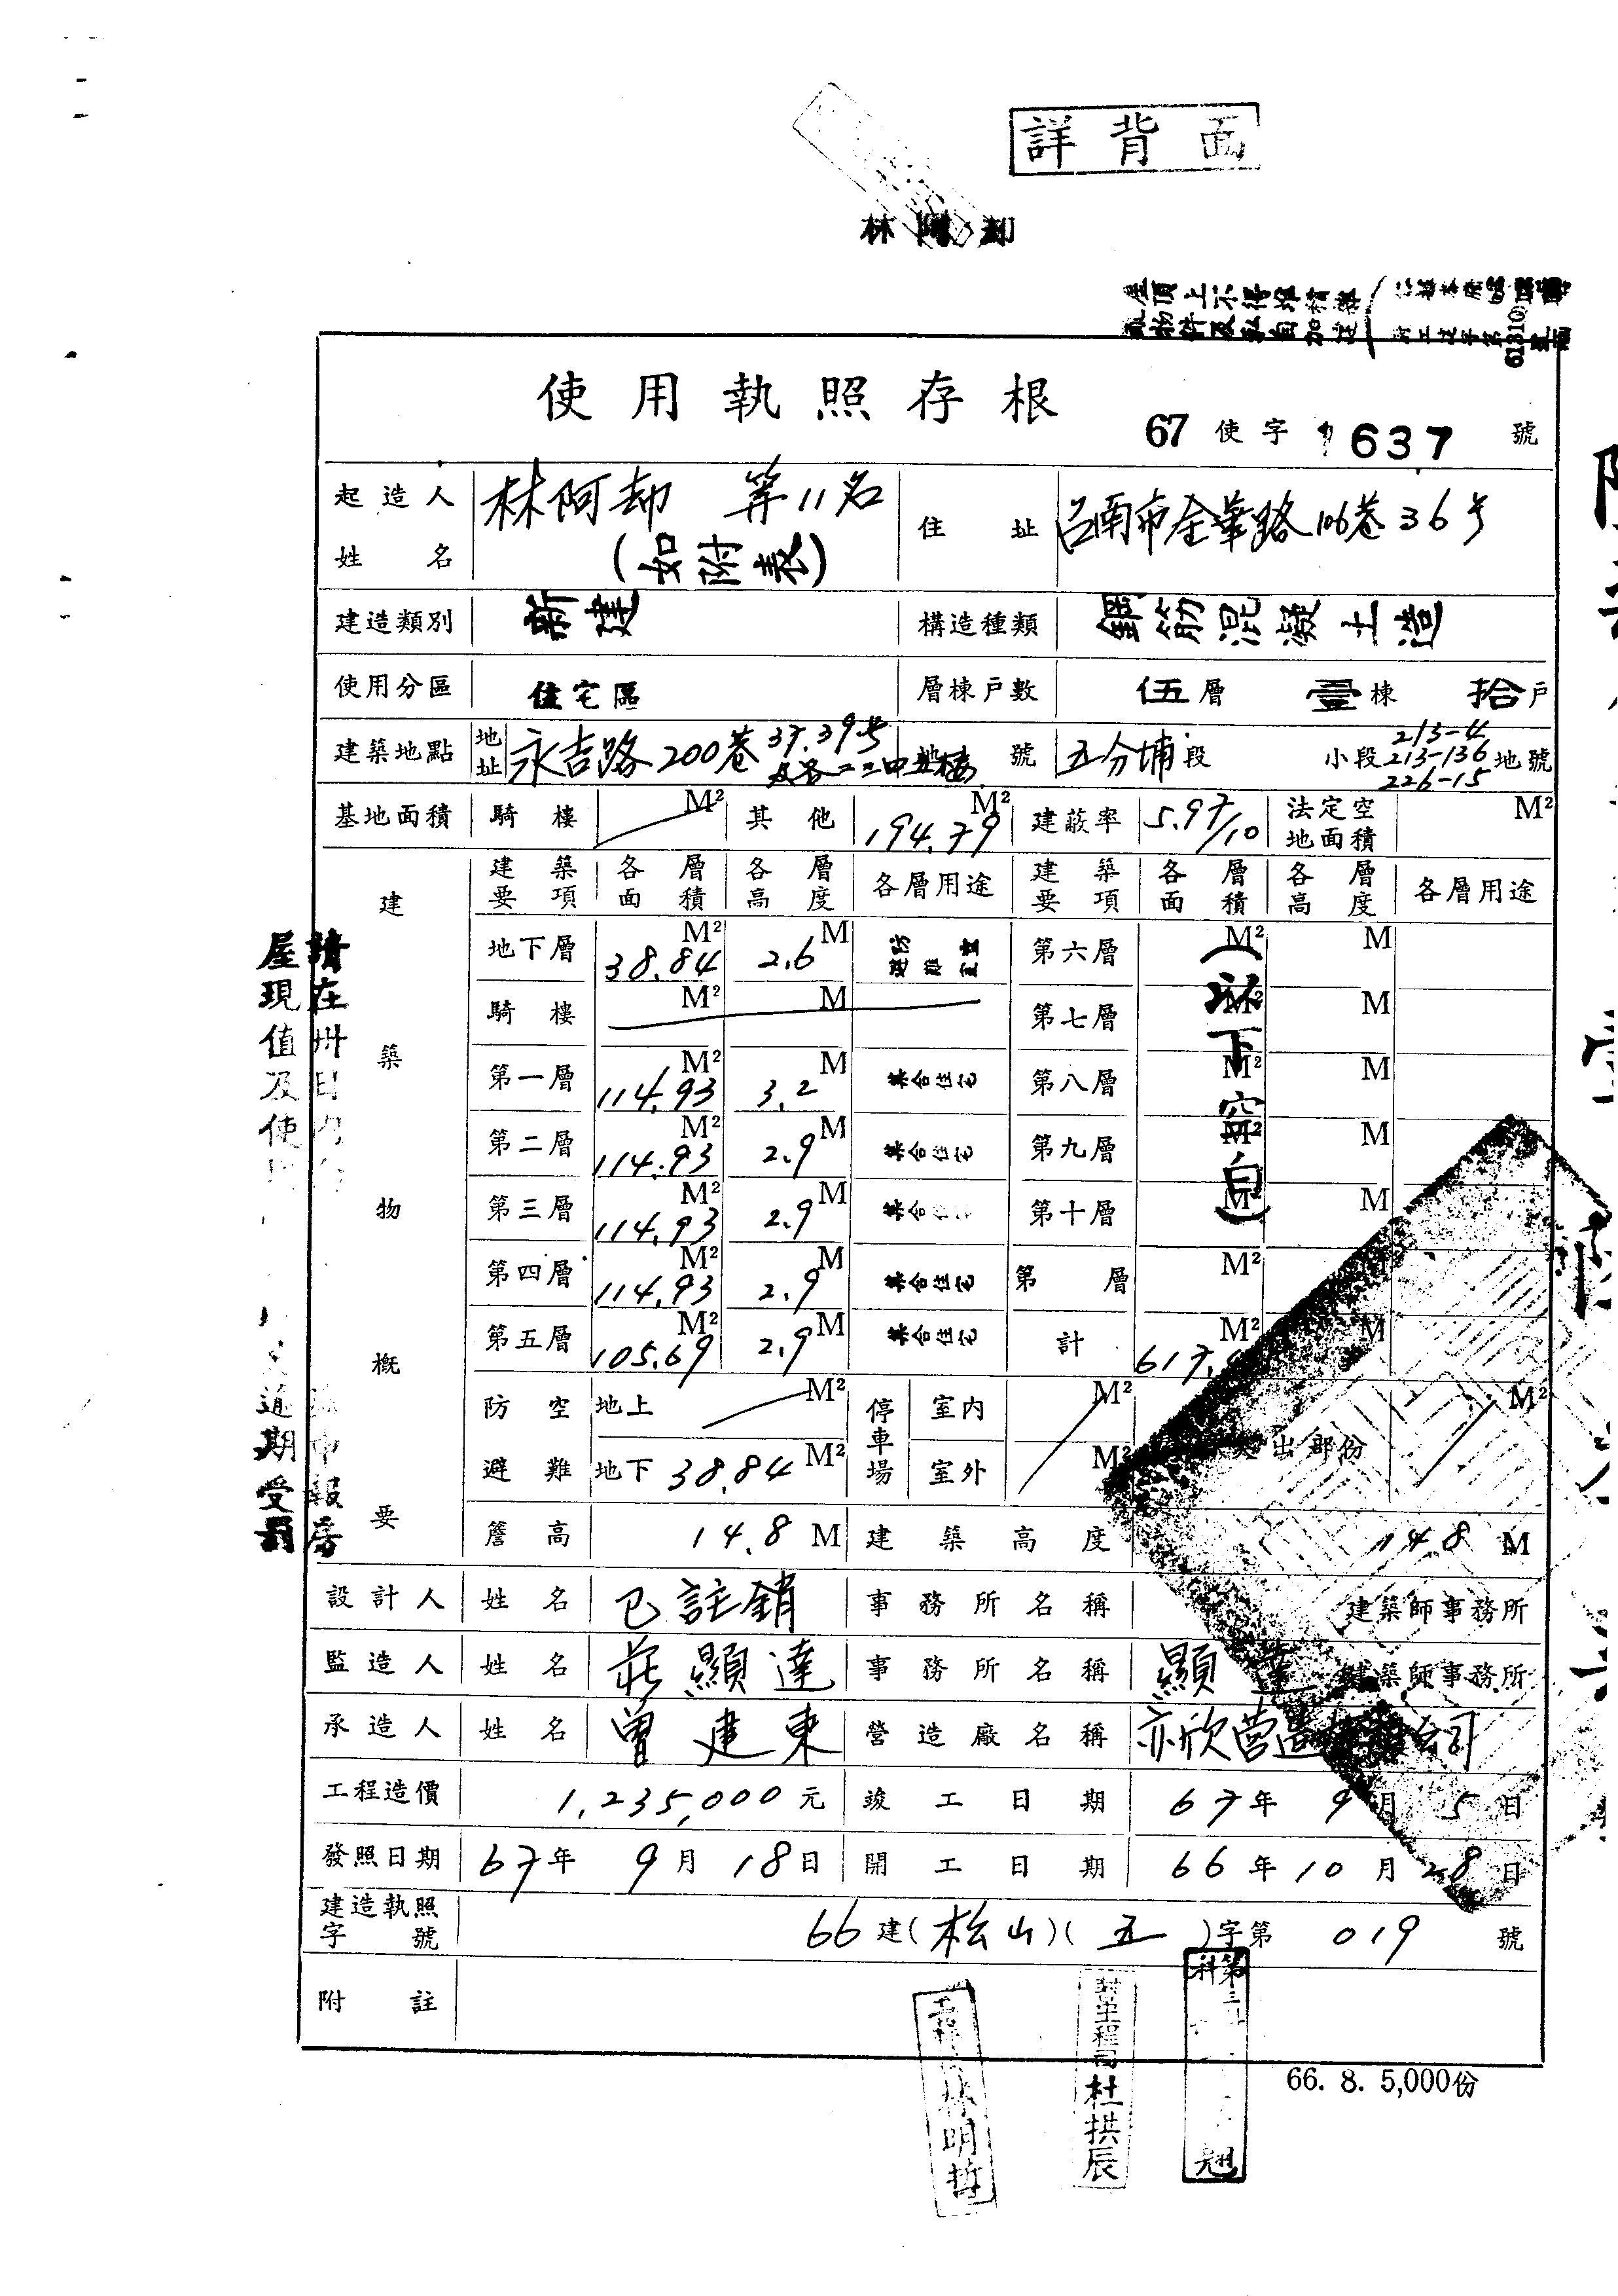 詳背面
林阿却
屋頂上不得堆積雜
亂物件及私自加建
使用執照存根
67 使字 1637 號
起造人姓名 林阿却 等11名 (如附表) 住址 台南市金華路106巷36号
建造類別 新建 構造種類 鋼筋混凝土造
使用分區 住宅區 層棟戶數 伍層 壹棟 拾戶
建築地點 地址 永吉路200巷37.39号及各二三四五樓 地號 五分埔段 小段 213-4 213-136 226-15 地號
基地面積 騎樓 M² 其他 194.79 M² 建蔽率 5.97/10 法定空地面積 M²
建築物概要
建築要項 各層面積 各層高度 各層用途 建築要項 各層面積 各層高度 各層用途
地下層 38.84 M² 2.6 M 防空避難室 第六層 M² M
騎樓 M² M 第七層 M² M
第一層 114.93 M² 3.2 M 集合住宅 第八層 M² M
第二層 114.93 M² 2.9 M 集合住宅 第九層 M² M
第三層 114.93 M² 2.9 M 集合住宅 第十層 M² M
第四層 114.93 M² 2.9 M 集合住宅 第 層 M²
第五層 105.69 M² 2.9 M 集合住宅 計 617. M² M
(以下空白)
防空避難 地上 M² 停車場 室內 M² 出部份 M²
地下 38.84 M² 室外 M²
簷高 14.8 M 建築高度 14.8 M
設計人 姓名 已註銷 事務所名稱 建築師事務所
監造人 姓名 莊顯達 事務所名稱 顯達 建築師事務所
承造人 姓名 曾建東 營造廠名稱 亦欣营造 公司
工程造價 1,235,000元 竣工日期 67年9月5日
發照日期 67年9月18日 開工日期 66年10月28日
建造執照字號 66建(松山)(五)字第019號
附註
請在卅日內 申報房
屋現值及使 逾期受罰
66. 8. 5,000份
林明哲
工程司杜拱辰